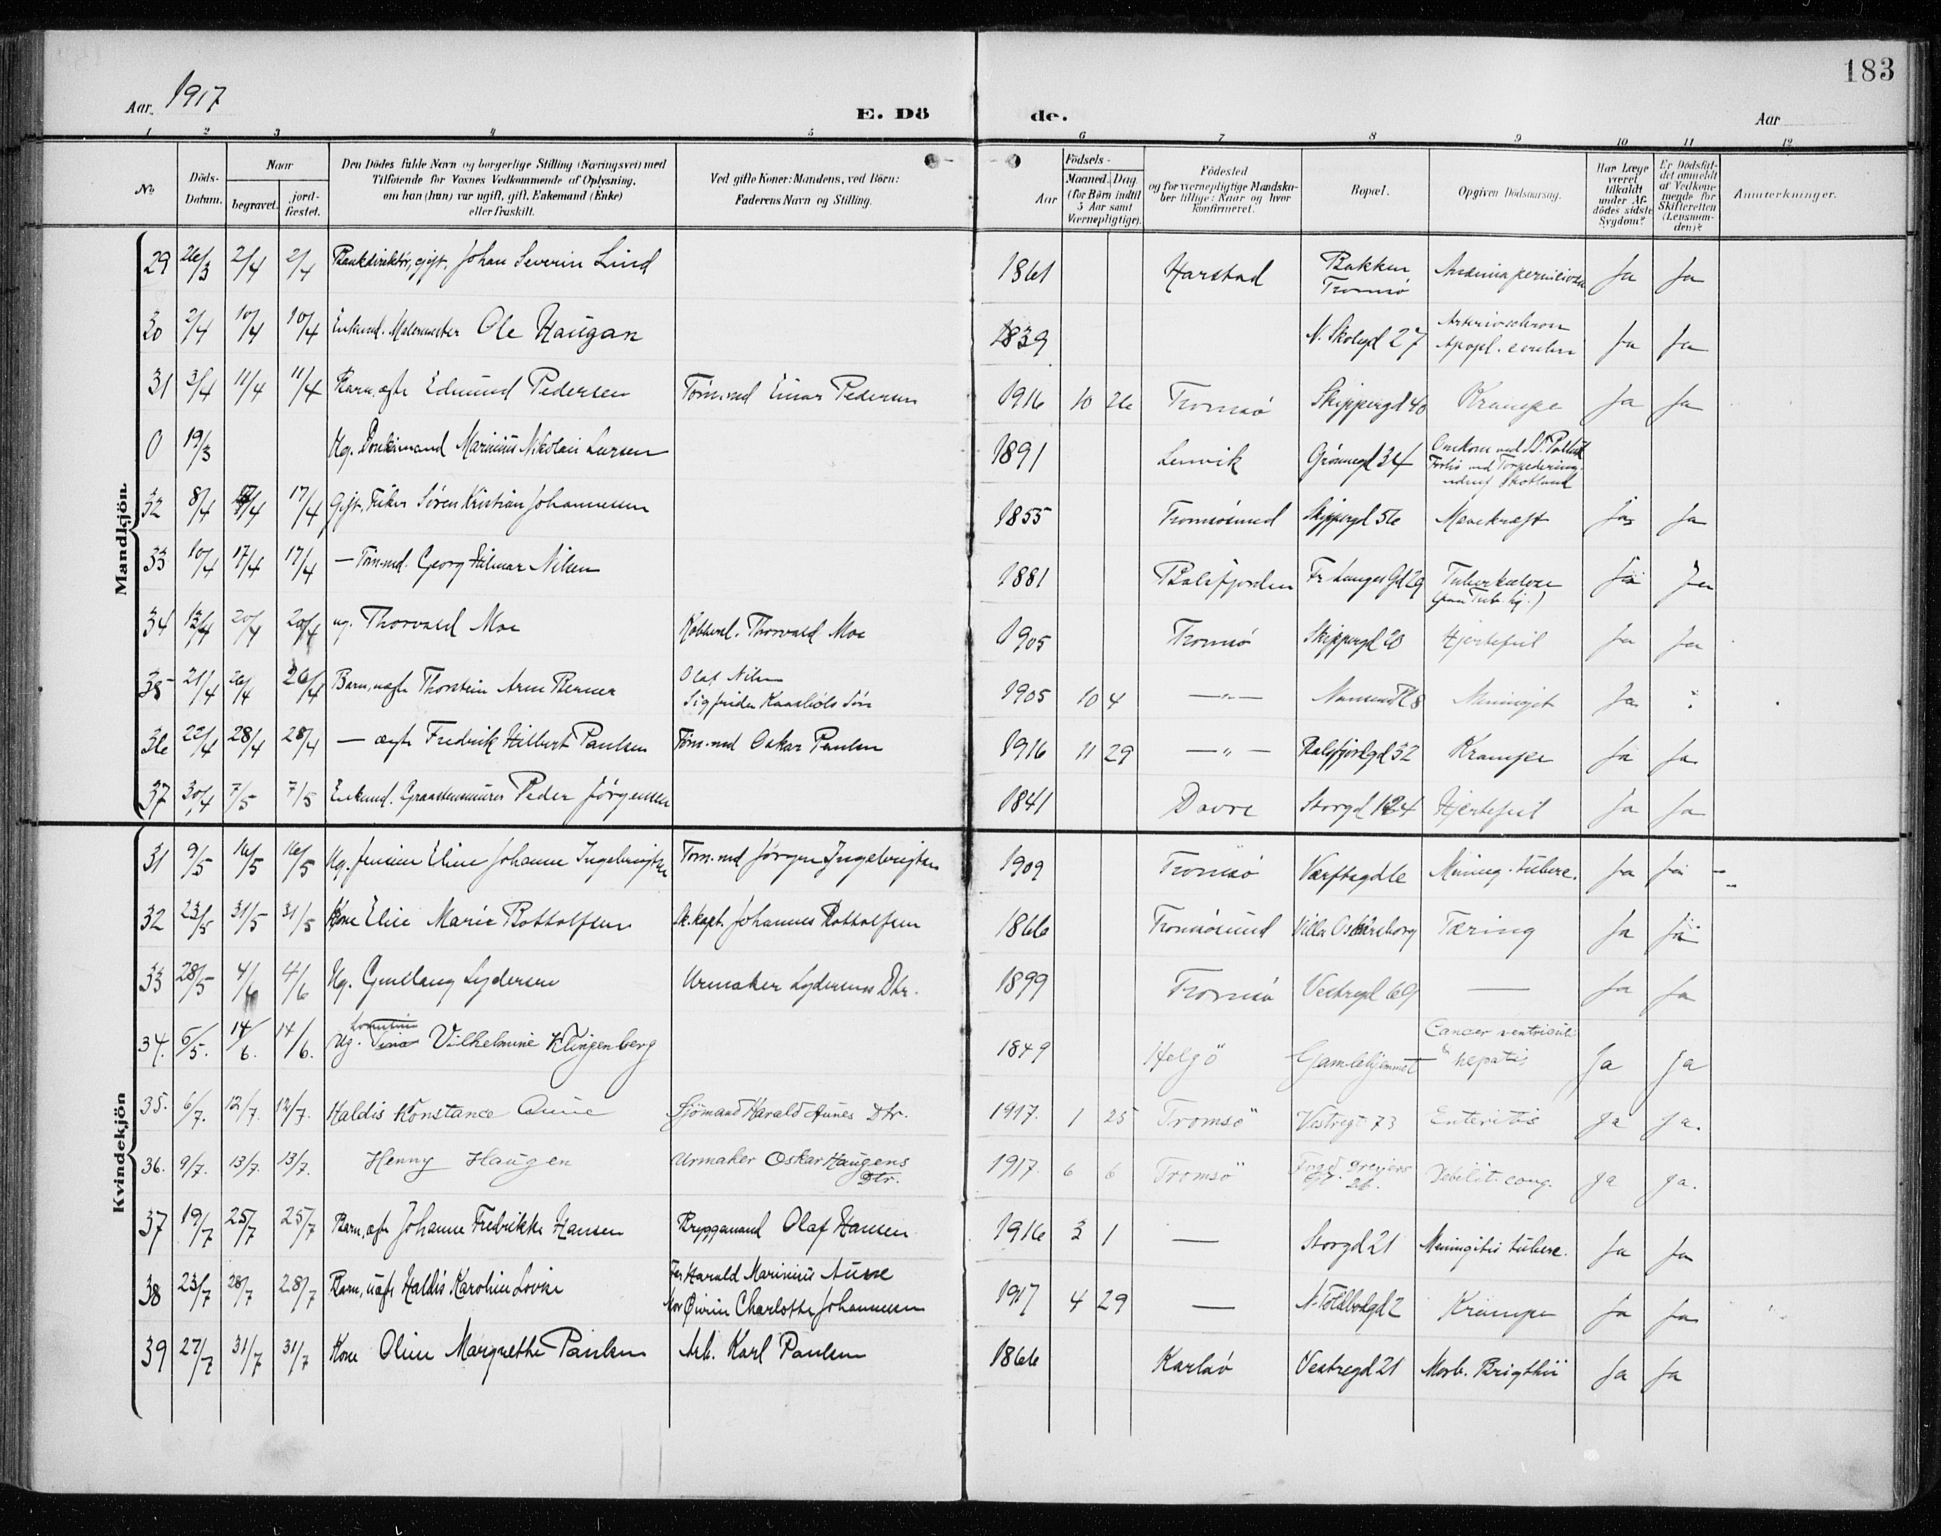 183
Aar 1917
E. Dö de.
Aar
1 2 3 4 5 6 7 8 9 10 11 12
No
Döds-Datum.
Naar
begravet.
jord-fæstet.
Den Dödes fulde Navn og borgerlige Stilling (Næringsvei) med Tilføiende for Voxnes Vedkommende af Oplysning, om han (hun) var ugift, gift, Enkemand (Enke) eller fraskilt.
Ved gifte Koner: Mandens, ved Börn: Faderens Navn og Stilling.
Födsels-
Aar
Maaned. Dag
(for Børn indtil 5 Aar samt Værnepligtige).
Födested og for værnepligtige Mandskaber tillige: Naar og hvor konfirmeret.
Bopæl.
Opgiven Dødsaarsag.
Har Læge været tilkaldt under Afdødes sidste Sygdom?
Er Dødsfaldet anmeldt af Vedkommende for Skifteretten (Lensmanden)?
Anmærkninger.
Mandkjön.
29 26/3 2/4 2/4 Bankdirektör, gift, Johan Severin Lind 1861 Harstad Bakken Tromsö Anæmia perniciosa Ja Ja
30 2/4 10/4 10/4 Enkemd. Malermester Ole Haugan 1839 N. Skolegd 27 Ja Ja
31 3/4 11/4 11/4 Barn, ægte Edmund Pedersen Tömmd Einar Pedersen 1916 10 26 Tromsø Skippergd 40 Krampe Ja Ja
0 19/3 Ug. Donkimand Marinius Nikolai Larsen 1891 Lenvik Grønnegd 34 Omkom ved S.S. Fortis ved Torpedering Skotland
32 8/4 17/4 17/4 Gift, Fisker Søren Kristian Johannesen 1855 Tromsøsund Skippergd 56 Mavekræft Ja Ja
33 10/4 17/4 17/4 — Tömmd. Georg Hilmar Nilsen 1881 Balsfjorden Fr. Langes Gd 29 Tuberkulose Ja Ja
34 13/4 20/4 20/4 ug. Thorvald Moe Købmd. Thorvald Moe 1905 Tromsø Skippergd 20 Hjertefeil Ja Ja
35 21/4 26/4 26/4 Barn, uægte Thorstein Arne Berner Olaf Nilsen Sigfrida Søn 1905 10 4 —„— Meningit Ja „
36 22/4 28/4 28/4 — ægte Fredrik Hilbert Paulsen Tömmd Oskar Paulsen 1916 11 29 —„— Balsfjordgd 32 Krampe Ja Ja
37 30/4 7/5 7/5 Enkemd. Graastensmurer Peder Jörgensen 1841 Dovre Storgd 124 Hjertefeil Ja Ja
Kvindekjön
31 9/5 16/5 16/5 Ug. Jensine Eline Johanne Ingebrigtsen Tømmd Jørgen Ingebrigtsen 1909 Tromsø Værftsgd 6 Mening. tuberc. Ja Ja
32 23/5 31/5 31/5 Kone Elise Marie Bottolfsen Sk.kapt. Johannes Bottolfsen 1866 Tromsøsund Villa Oskarsborg Tæring Ja Ja
33 28/5 4/6 4/6 Ug. Gunlaug Lydersen Urmaker Lydersens Dtr. 1899 Tromsø Vestregd 69 — Ja Ja
34. 6/5. 14/6. 14/6. Ug. Vilhelmine Klingenberg 1849 Helgö Gamlehjemmet Cancer ventriculi & hepatis Ja Ja
35. 6/7. 12/7. 12/7. Haldis Konstance Aune Sjömand Harald Aunes Dtr. 1917. 1 25 Tromsö Vestregt 73 Enteritis Ja Ja.
36. 9/7. 13/7. 13/7. Henny Haugen Urmaker Oskar Haugens Dtr. 1917. 6 6 Tromsö Fogd Dreyers gt. 26. Debilit. cong. Ja Ja.
37 19/7 25/7 25/7 Barn, ægte Johanne Fredrikke Hansen Bryggemand Olaf Hansen 1916 3 1 — Storgd 21 Meningitis tuberc. Ja Ja
38 23/7 28/7 28/7 Barn, uægte Haldis Karoline Lovise Far Harald Marinius Aune Mor Charlotte Johannesen 1917 4 29 — N. Toldbodgd 2 Krampe Ja Ja
39 27/7 31/7 31/7 Kone Oline Margrethe Paulsen Arb. Karl Paulsen 1866 Karlsø Vestregd 21 Morb. Brigthii Ja Ja